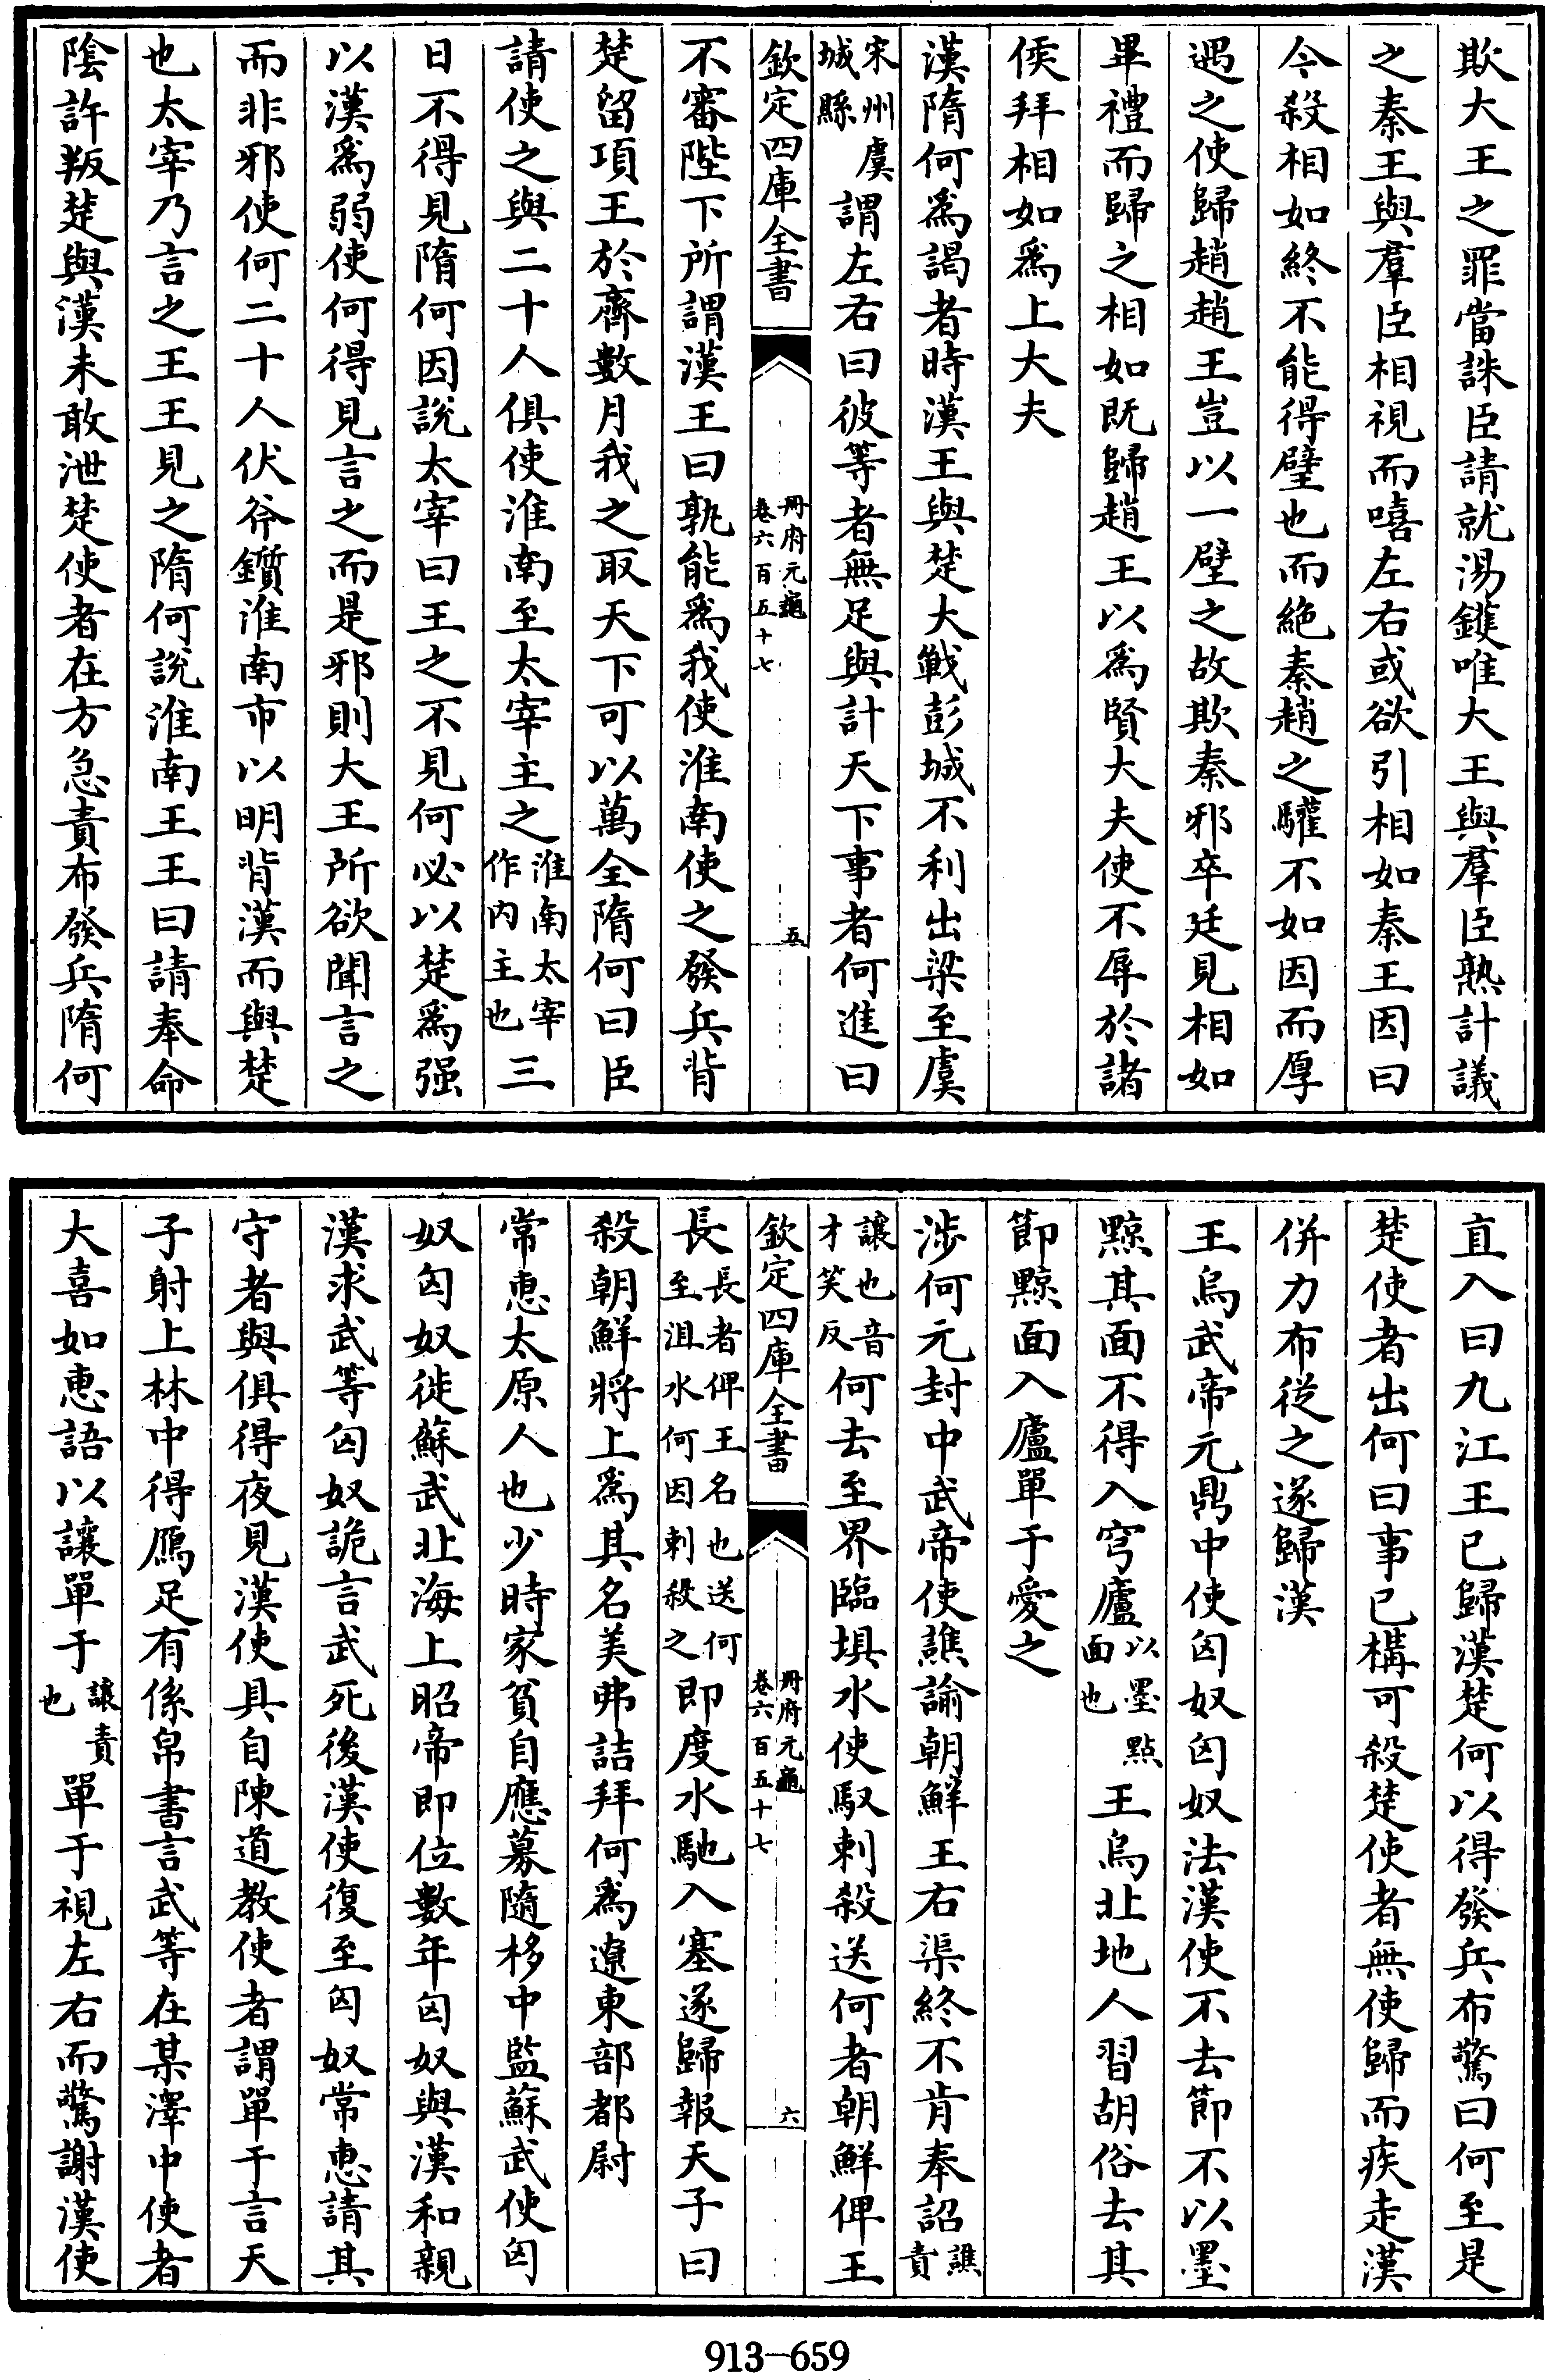 欺大王之罪當誅臣請就湯鑊唯大王與羣臣熟計議
之秦王與羣臣相視而嘻左右或欲引相如秦王因曰
今殺相如終不能得璧也而絶秦趙之驩不如因而厚
遇之使歸趙趙王豈以一璧之故欺秦邪卒廷見相如
畢禮而歸之相如既歸趙王以爲賢大夫使不辱於諸
侯拜相如爲上大夫
漢隋何爲謁者時漢王與楚大戰彭城不利出梁至虞
宋州虞
城縣
謂左右曰彼等者無足與計天下事者何進曰
欽定四庫全書
冊府元龜
卷六百五十七
五
不審陛下所謂漢王曰孰能爲我使淮南使之發兵背
楚留項王於齊數月我之取天下可以萬全隋何曰臣
請使之與二十人俱使淮南至太宰主之
淮南太宰
作内主也
三
日不得見隋何因説太宰曰王之不見何必以楚爲强
以漢爲弱使何得見言之而是邪則大王所欲聞言之
而非邪使何二十人伏斧鑕淮南市以明背漢而與楚
也太宰乃言之王王見之隋何説淮南王王曰請奉命
陰許叛楚與漢未敢泄楚使者在方急責布發兵隋何
直入曰九江王已歸漢楚何以得發兵布驚曰何至是
楚使者出何曰事已構可殺楚使者無使歸而疾走漢
併力布從之遂歸漢
王烏武帝元鼎中使匈奴匈奴法漢使不去節不以墨
黥其面不得入穹廬
以墨㸃
面也
王烏北地人習胡俗去其
節黥面入廬單于愛之
涉何元封中武帝使譙諭朝鮮王右渠終不肯奉詔
譙
責
讓也音
才笑反
何去至界臨浿水使馭刺殺送何者朝鮮俾王
欽定四庫全書
冊府元龜
卷六百五十七
六
長
長者俾王名也送何
至沮水何因刺殺之
即度水馳入塞遂歸報天子曰
殺朝鮮將上爲其名美弗詰拜何爲遼東部都尉
常惠太原人也少時家貧自應募隨栘中監蘇武使匈
奴匈奴徙蘇武北海上昭帝即位數年匈奴與漢和親
漢求武等匈奴詭言武死後漢使復至匈奴常惠請其
守者與俱得夜見漢使具自陳道教使者謂單于言天
子射上林中得鴈足有係帛書言武等在某澤中使者
大喜如惠語以讓單于
讓責
也
單于視左右而驚謝漢使
913-659